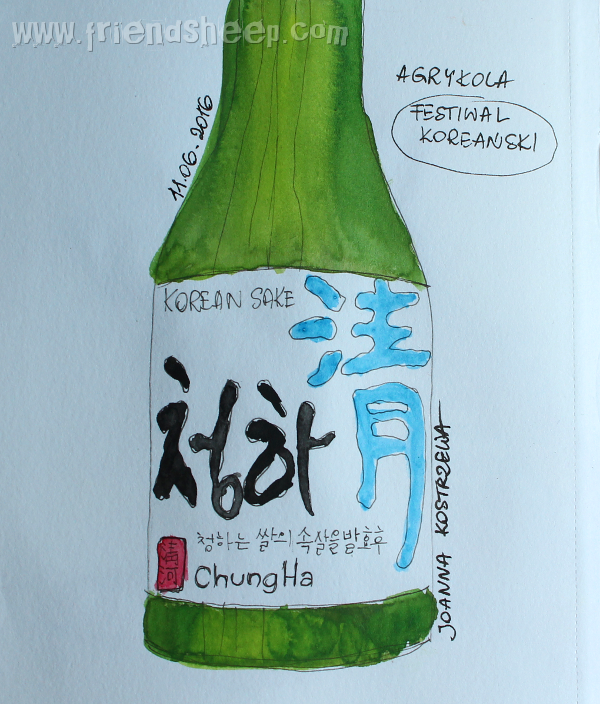 www.friendsheep.com
AGRYKOLA
FESTIWAL
KOREAŃSKI
11.06.2016
KOREAN SAKE
清
청하
청하는 쌀의 속살을 발효후
ChungHa
JOANNA KOSTRZEWA